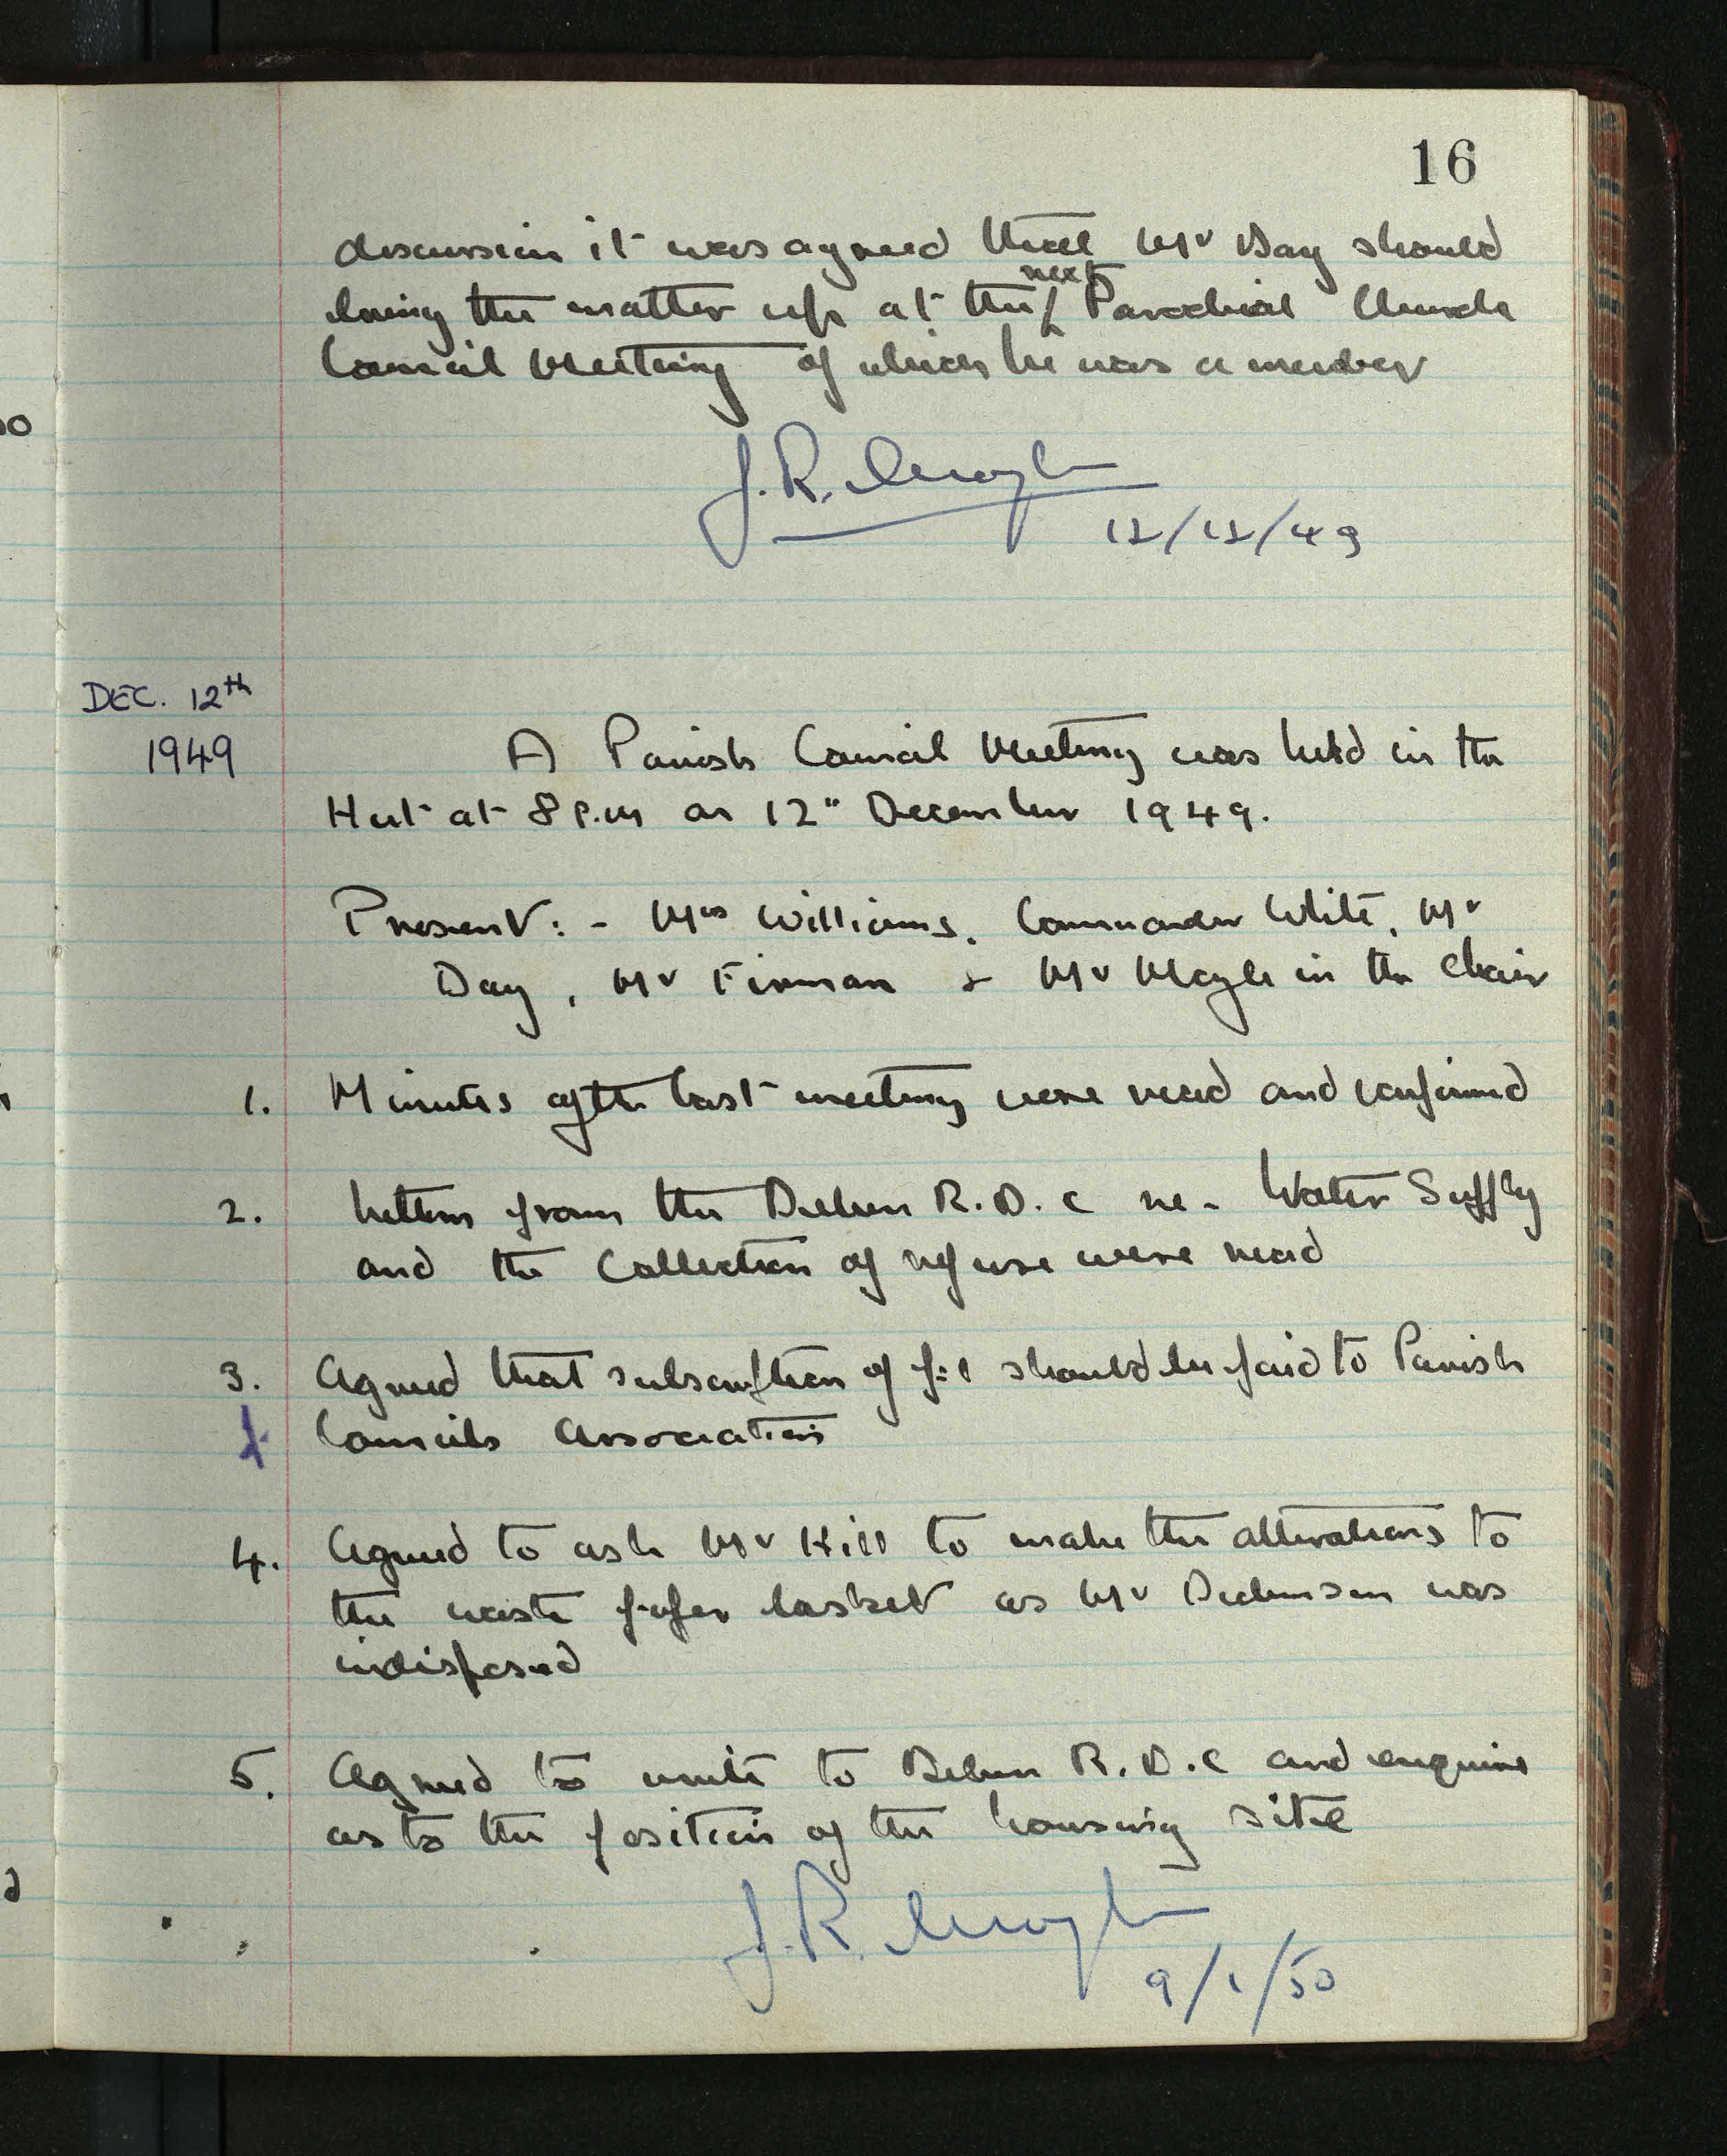 16
discussion it was agreed that Mr Day should
bring the matter up at the next Parochial Church
Council Meeting of which he was a member
J. R. Mayle
12/12/49
DEC. 12th
1949
A Parish Council Meeting was held in the
Hut at 8 P.M on 12" December 1949.
Present: - Mrs Williams, Commander White, Mr
Day, Mr Firman & Mr Mayle in the chair
1. Minutes of the last meeting were read and confirmed
2. Letters from the Deben R.D.C re- Water Supply
and the Collection of refuse were read
3. Agreed that subscription of should be paid to Parish
Councils Association
4. Agreed to ask Mr Hill to make the alterations to
the waste paper basket as Mr was
indisposed
5. Agreed to write to Deben R.D.C and enquire
as to the position of the housing site
J. R. Mayle
9/1/50